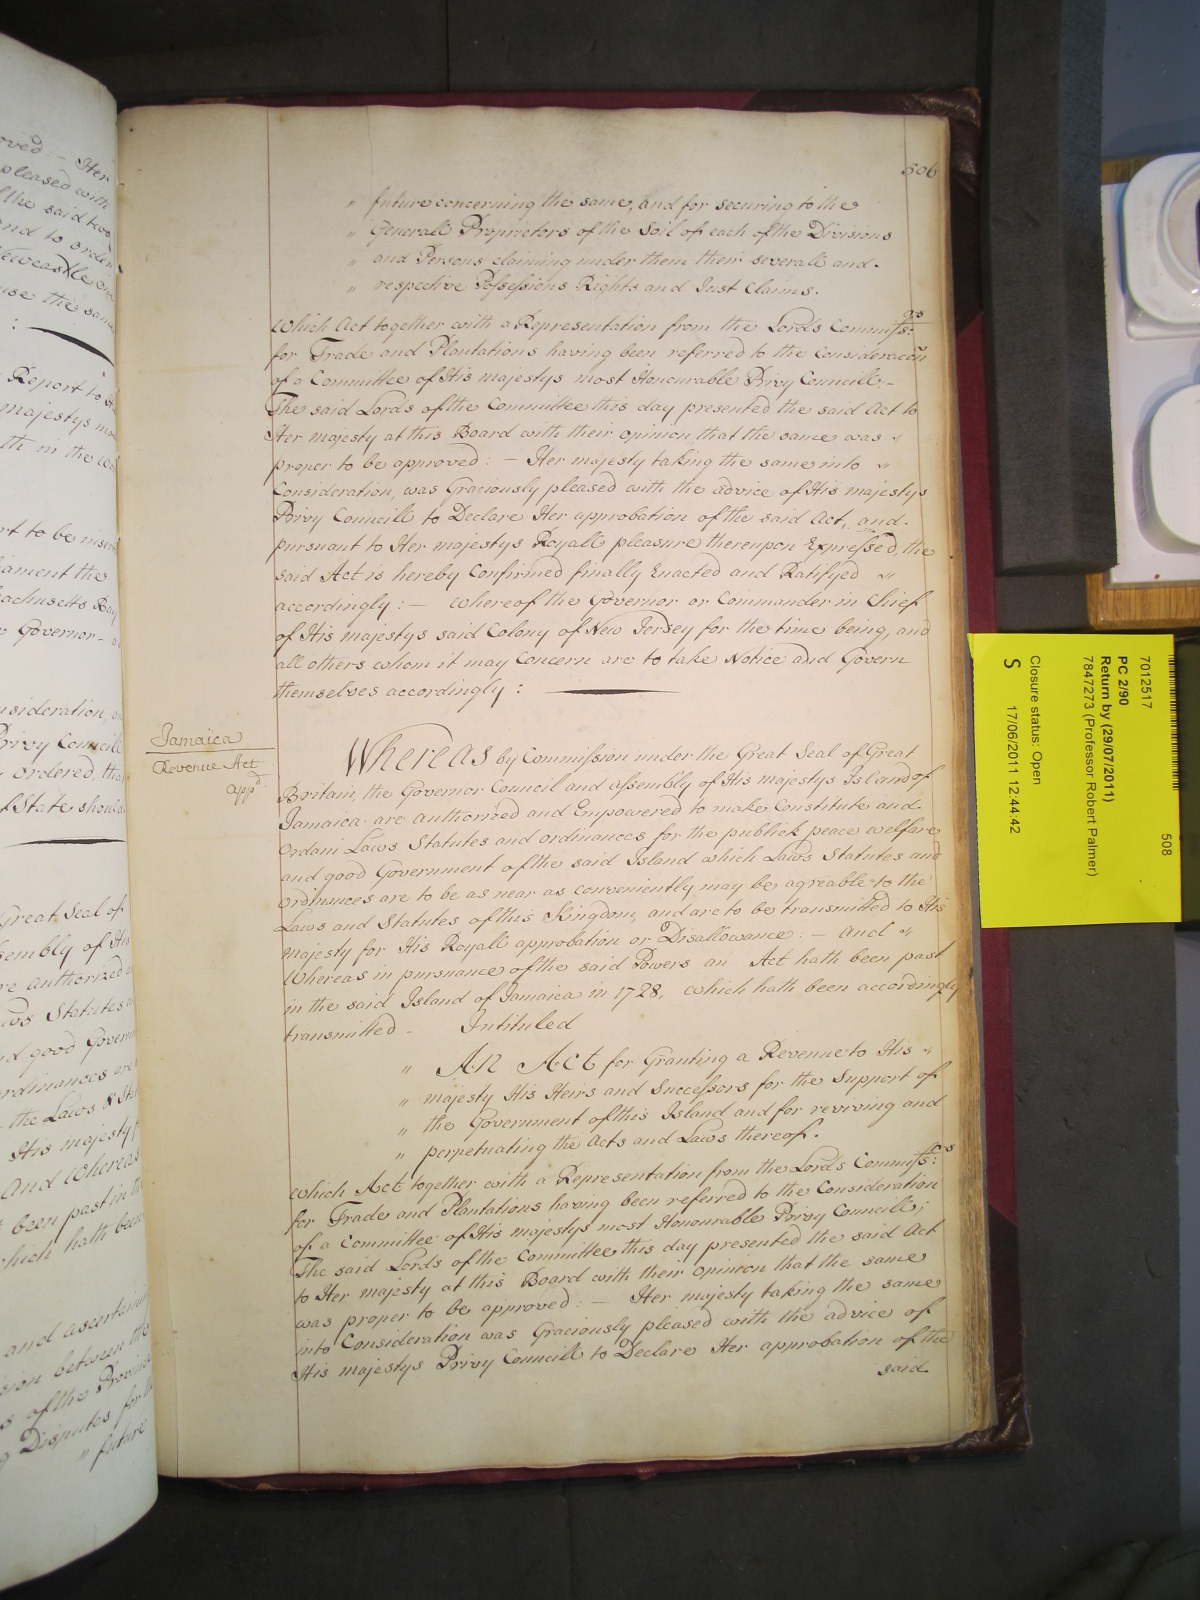 506
" future concerning the same, and for securing to the
" Generall Proprietors of the Soil of each of the Divisions
" and Persons claiming under them their severall and
" respective Possessions Rights and Just Claims.
Which Act together with a Representation from the Lords Commiss:rs
for Trade and Plantations having been referred to the Consideracon
of a Committee of His majestys most Honourable Privy Councill.-
The said Lords of the Committee this day presented the said Act to
Her majesty at this Board with their opinion, that the same was "
proper to be approved: - Her majesty taking the same into "
Consideration, was Graciously pleased with the advice of His majestys
Privy Councill to Declare Her approbation of the said Act, and.
pursuant to Her majestys Royall pleasure thereupon Expressed, the
said Act is hereby Confirmed finally Enacted and Ratifyed "
accordingly: - whereof the Governor or Commander in Chief
of His majestys said Colony of New Jersey for the time being, and
all others whom it may Concern are to take Notice and Govern
themselves accordingly:
Jamaica
Revenue Act
app.d
Whereas by Commission under the Great Seal of Great
Britain, the Governor Council and assembly of His majestys Island of
Jamaica are authorized and Empowered to make Constitute and
Ordain Laws Statutes and ordinances for the publick peace welfare
and good Government of the said Island which Laws Statutes and
ordinances are to be as near as conveniently may be agreable to the
Laws and Statutes of this Kingdom, and are to be transmitted to His
majesty for His Royall approbation or Disallowance: - And "
Whereas in pursuance of the said Powers an Act hath been past
in the said Island of Jamaica in 1728, which hath been accordingly
transmitted - Intituled
" An Act for Granting a Revenue to His "
" majesty His Heirs and Successors for the Support of
" the Government of this Island and for reviving and
" perpetuating the Acts and Laws thereof.
Which Act together with a Representation from the Lords Commiss:rs
for Trade and Plantations having been referred to the Consideration
of a Committee of His majestys most Honourable Privy Councill;
The said Lords of the Committee this day presented the said Act
to Her majesty at this Board with their opinion that the same
was proper to be approved: - Her majesty taking the same
into Consideration was Graciously pleased with the advice of
His majestys Privy Councill to Declare Her approbation of the
said
7012517
508
PC 2/90
Return by (29/07/2011)
7847273 (Professor Robert Palmer)
Closure status: Open
S 17/06/2011 12:44:42